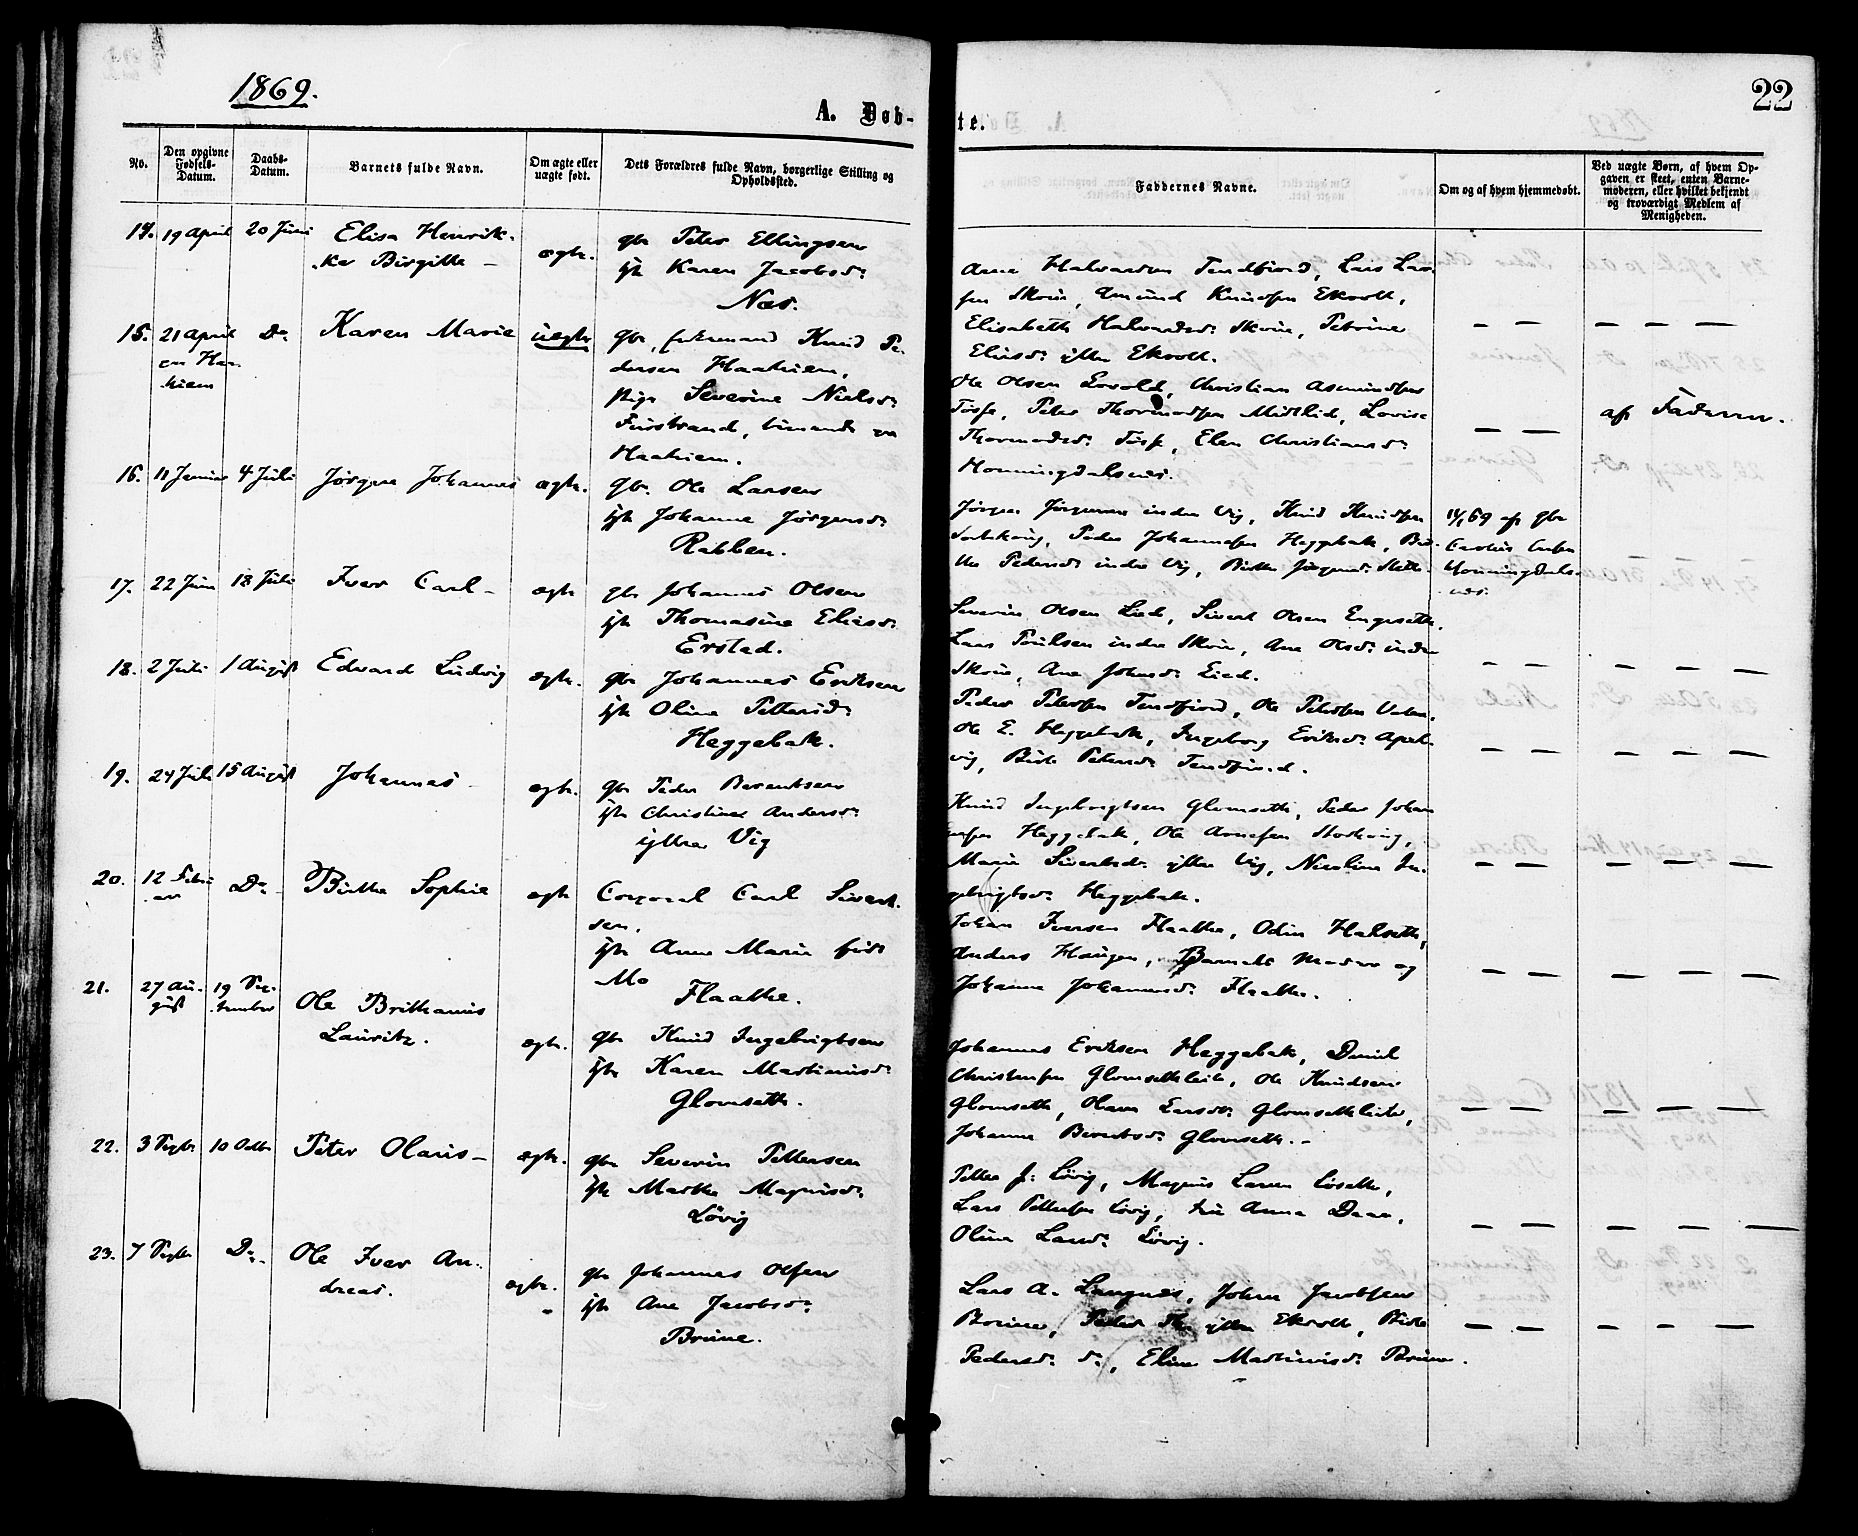 1869.
22
A. Døb-
te.
No.
Den opgivne Fødsels-Datum.
Daabs-Datum.
Barnets fulde Navn.
Om ægte eller uægte født.
Dets Forældres fulde Navn, borgerlige Stilling og Opholdssted.
Faddernes Navne.
Om og af hvem hjemmedøbt.
Ved uægte Børn, af hvem Opgaven er skeet, enten Barnemoderen, eller hvilket bekjendt og troværdigt Medlem af Menigheden.
14. 19 April 20 Juni Elisa Henrik- ægte. gbr Peter Ellingsen
ker Birgitte – Karen Jacobsd:
Næs.
Halvardsen Tendfjord, Lars Lar-
sen Skove, Amund Knudsen Ekrolt,
Elisabeth Halvardsd: Skove, Petrine
Eliasd: ytter Ekrolt.
15. 21 April Do Karen Marie uægte gbr, Knud Pe-
dersen Haahiem,
pige Severine Nielsd:
Furstrand,
Haahiem.
Ole Olsen Lovold, Christian Asmundsen
Tusse, Peter Thormodsen Midtlid, Lovise
Thormodsd: Tusse, Elen Christiansd:
Honningdalsnes.
af Faderen.
16. 11 Januar 4 Juli Jørgen Johannes ægte. Gbr. Ole Larsen
Johanne Jørgensd:
Rabben.
Jørgen Jørgensen indre Vig, Knud Knudsen
Storkvig, Peder Johannesen Heggebak, Bir-
the Pedersd: indre Vig, Birthe Jørgensd:
69 af gbr
Honningdals-
nes.
17. 22 Juni 18 Juli Iver Carl – ægte gbr Johannes Olsen
Thomasine Eliasd:
Erstad.
Severin Olsen Lied, Sivert Olsen Engeseth,
Lars Poulsen indre Skove, Ane Olsd: indre
Skove, Ane Johnsd: Lied.
18. 2 Juli 1 August Edvard Ludvig ægte. gbr Johannes Eriksen
Oline Pettersd:
Heggebak.
Peder Petersen Tendfjord, Ole Petersen
Ole E. Heggebak, Ingeborg Eriksd: Apal-
vig, Birthe Petersd: Tendfjord.
19. 24 Juli 15 August Johannes – ægte. gbr Peder Berentsen
Christine Andersd:
ytre Vig
Knud Ingebrigtsen Glomseth, Peder Johan-
nesen Heggebak, Ole Arnesen Storkvig,
Marie Sivertsd: ytter Vig, Nicoline In-
gebrigtsd: Heggebak.
20. 12 Febru-
ar Do Birthe Sophie ægte Corporal Carl Sivert-
sen.
Anne Marie født
Mo
Flaathe.
Johan Iversen Flaathe, Odin Halseth,
Anders Haugen, Barnets Moder og
Johanne Johannesd: Flaathe.
21. 27 Au-
gust 19 Sep-
tember Ole Brithanius
Lauritz. ægte. gbr Knud Ingebrigtsen
Karen Martinusd:
Glomseth.
Johannes Eriksen Heggebak, Daniel
Christensen Glomsethleite, Ole Knudsen
Glomseth, Glomsethleite,
Johanne Berentsd: Glomseth. –
22. 3 Septbr 10 Octbr Peter Olaus – ægte. gbr Severin Pettersen
Marthe Magnusd:
Løvig
Petter J: Løvig, Magnus Larsen Løseth,
Lars Pettersen Løvig, Anna Daae,
Oline Larsd: Løvig.
23. 7 Septbr Do Ole Iver An-
dreas. ægte. gbr Johannes Olsen
Ane Jacobsd:
Brune.
Lars A. Langnes, Johan Jacobsen
Brune, Peder ytter Ekrolt, Birthe
Pedersd: d:, Eline Martinusd: Brune.